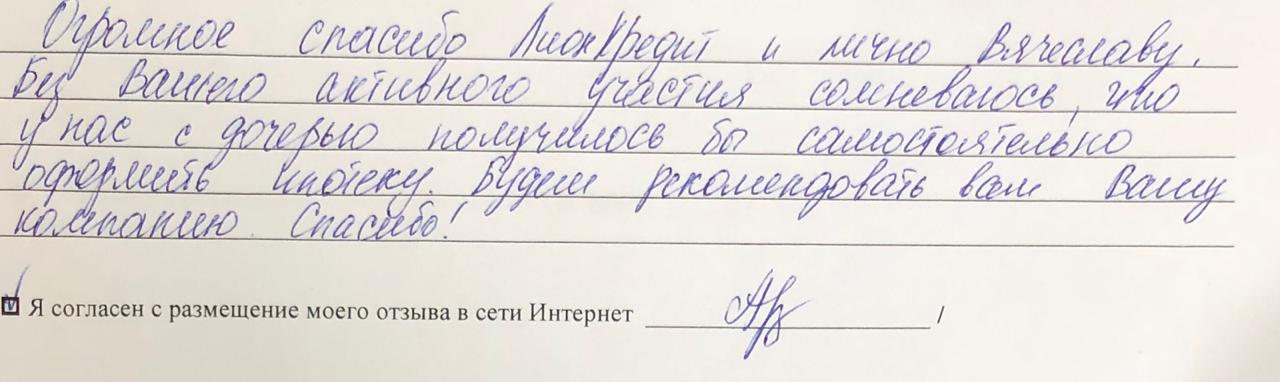 Огромное спасибо ЛионКредит и лично Вячеславу.
Без Вашего активного участия сомневаюсь, что
у нас с дочерью получилось бы самостоятельно
оформить ипотеку. Будем рекомендовать вам Вашу
компанию. Спасибо!
Я согласен с размещение моего отзыва в сети Интернет /